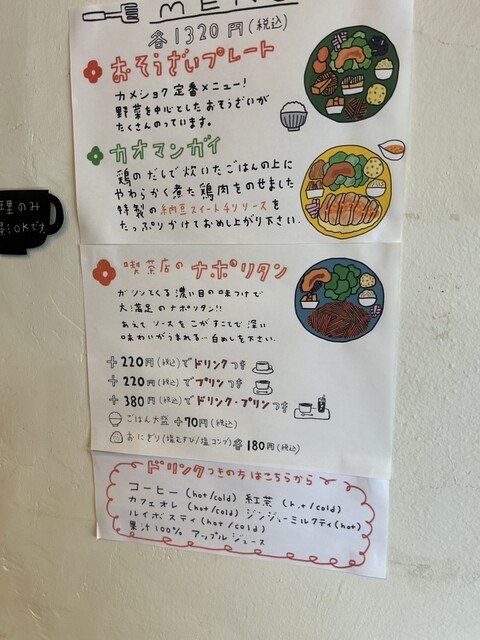 MENU
各1320円(税込)
おそうざいプレート
カメショク定番メニュー!
野菜を中心としたおそうざいが
たくさんのっています。
カオマンガイ
鶏のだしで炊いたごはんの上に
やわらかく煮た鶏肉をのせました
特製の納豆スイートチリソースを
たっぷりかけておめし上がり下さい。
喫茶店のナポリタン
ガツンとくる濃い目の味つけで
大満足のナポリタン!!
あえてソースをこがすことで深い
味わいがうまれる…召めし下さい。
+220円(税込)でドリンクつき
+220円(税込)でプリンつき
+380円(税込)でドリンク・プリンつき
ごはん大盛+70円(税込)
おにぎり(塩むすび/塩コンブ)各180円(税込)
ドリンクつきの方はこちらから
コーヒー(hot/cold) 紅茶(hot/cold)
カフェオレ(hot/cold) ジンジャーミルクティ(hot)
ルイボスティ(hot/cold)
果汁100% アップルジュース
理のみ
影OKです